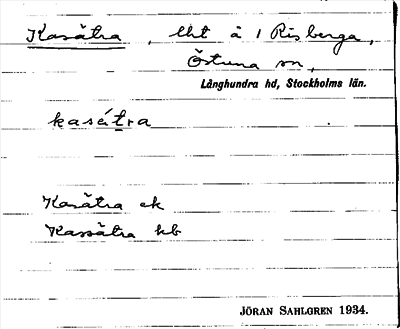 Kasätra, lht å 1 Risberga,
Östuna sn,
Långhundra hd, Stockholms län.
kasätra
Kasätra ek
Kassätra hb
JÖRAN SAHLGREN 1934.